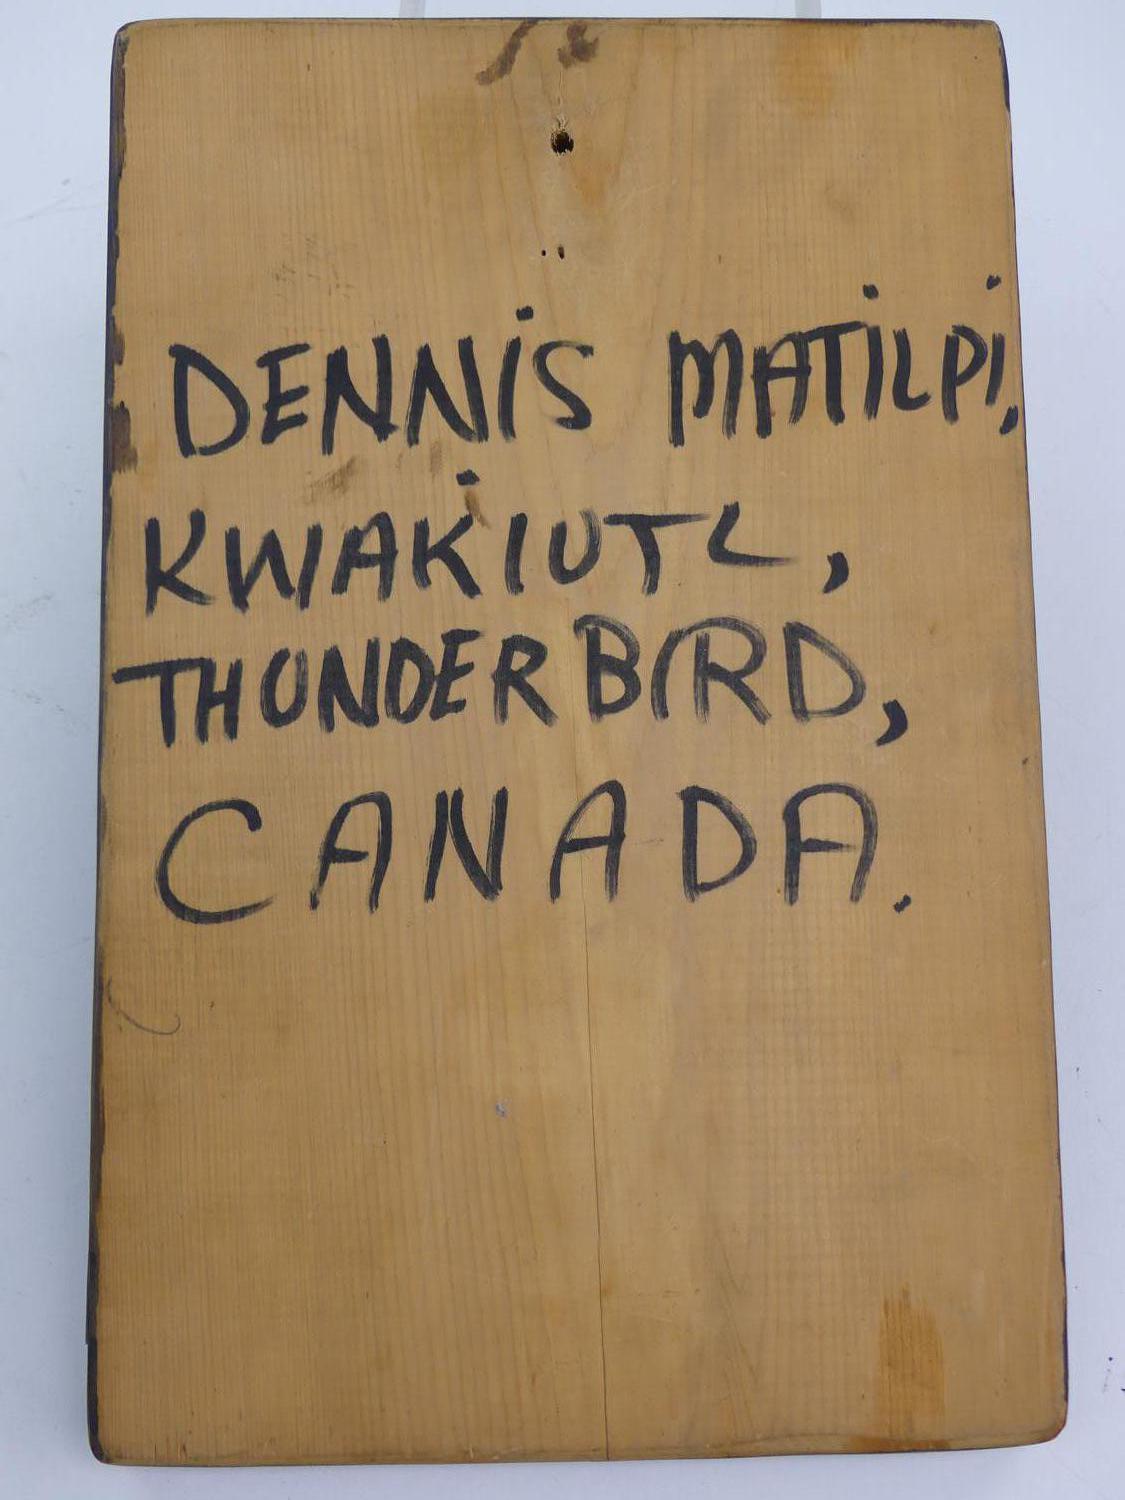 DENNIS MATILPI,
KWAKIUTL,
THUNDERBIRD,
CANADA.